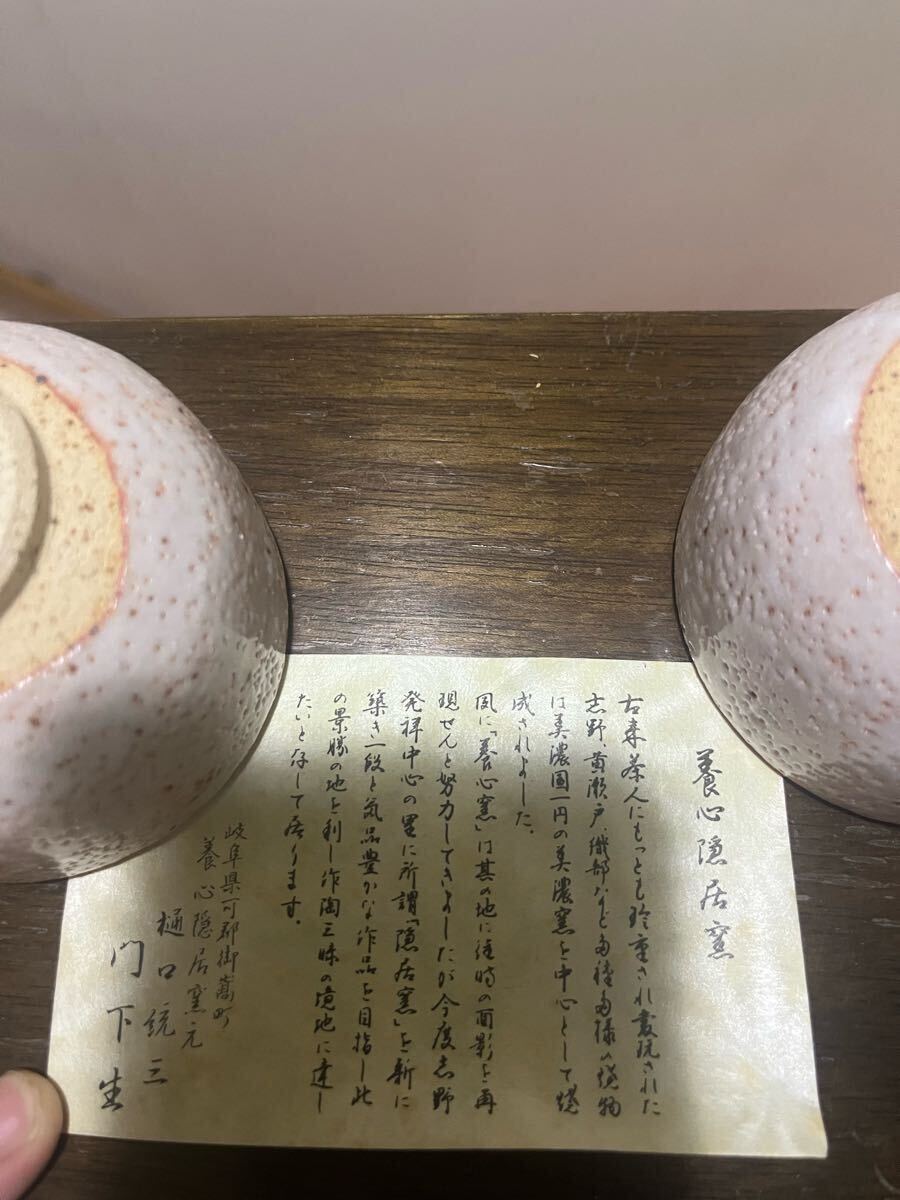 養心隠居窯
古来茶人にもっとも珍重され愛玩された
志野、黄瀬戸、織部など多種多様の焼物
は美濃国一円の美濃窯を中心として焼
成されました。
凮に「養心窯」は其の地に往時の面影を再
現せんと努力してきましたが今度志野
発祥中心の里に所謂「隠居窯」を新に
築き一段と気品豊かな作品を目指し此
の景勝の地を利し作陶三昧の境地に達し
たいと存じて居ります。
岐阜県可児郡御嵩町
養心隠居窯元
樋口統三
門下生